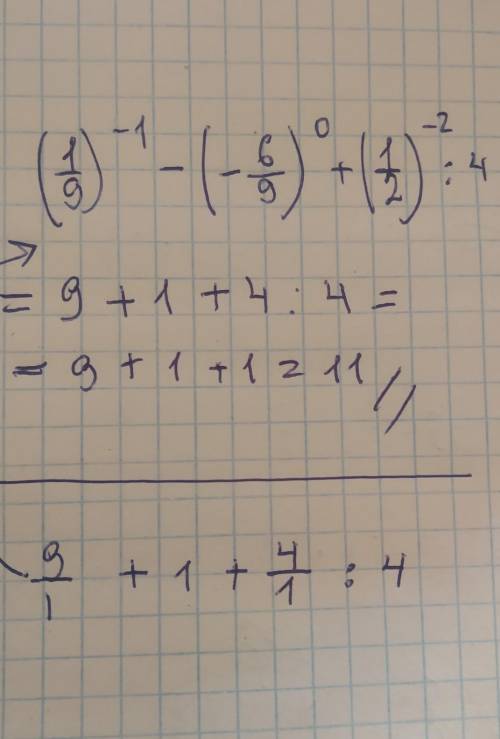 (1/9)^-1 - (-6/9)^0 + (1/2)^-2 : 4
= 9 + 1 + 4 : 4 =
= 9 + 1 + 1 = 11 //
9/1 + 1 + 4/1 : 4